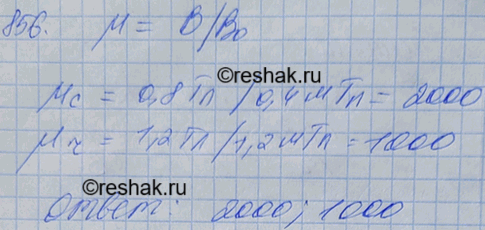 856. μ = B/B₀
©reshak.ru
μc = 0,8Тл/0,4мТл = 2000
μч = 1,2Тл/1,2мТл = 1000
©reshak.ru
Ответ: 2000; 1000